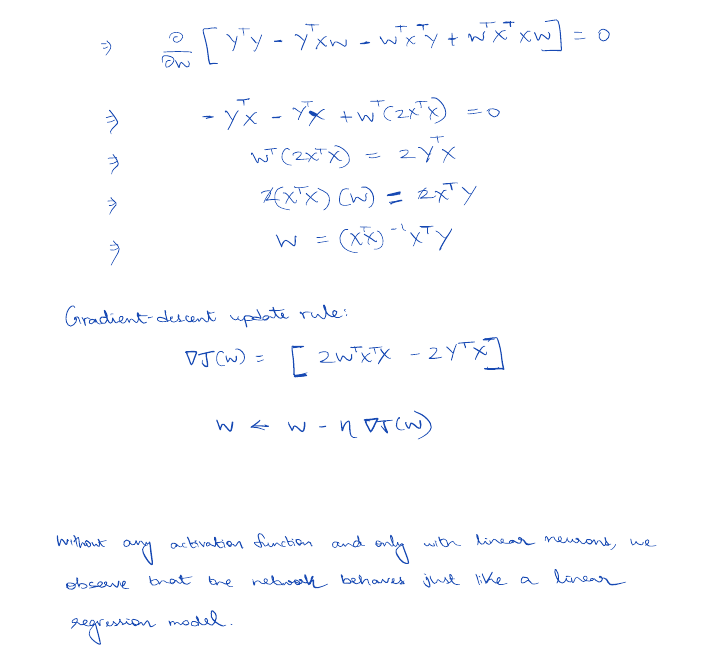 ⇒ ∂/∂w [YᵀY - YᵀXw - wᵀXᵀY + wᵀXᵀXw] = 0
⇒ - YᵀX - YᵀX + wᵀ(2XᵀX) = 0
⇒ wᵀ(2XᵀX) = 2YᵀX
⇒ 2(XᵀX)(w) = 2XᵀY
⇒ w = (XᵀX)⁻¹XᵀY
Gradient-descent update rule:
∇J(w) = [2wᵀXᵀX - 2YᵀX]ᵀ
w ← w - η∇J(w)
Without any activation function and only with linear neurons, we
observe that the network behaves just like a linear
regression model.